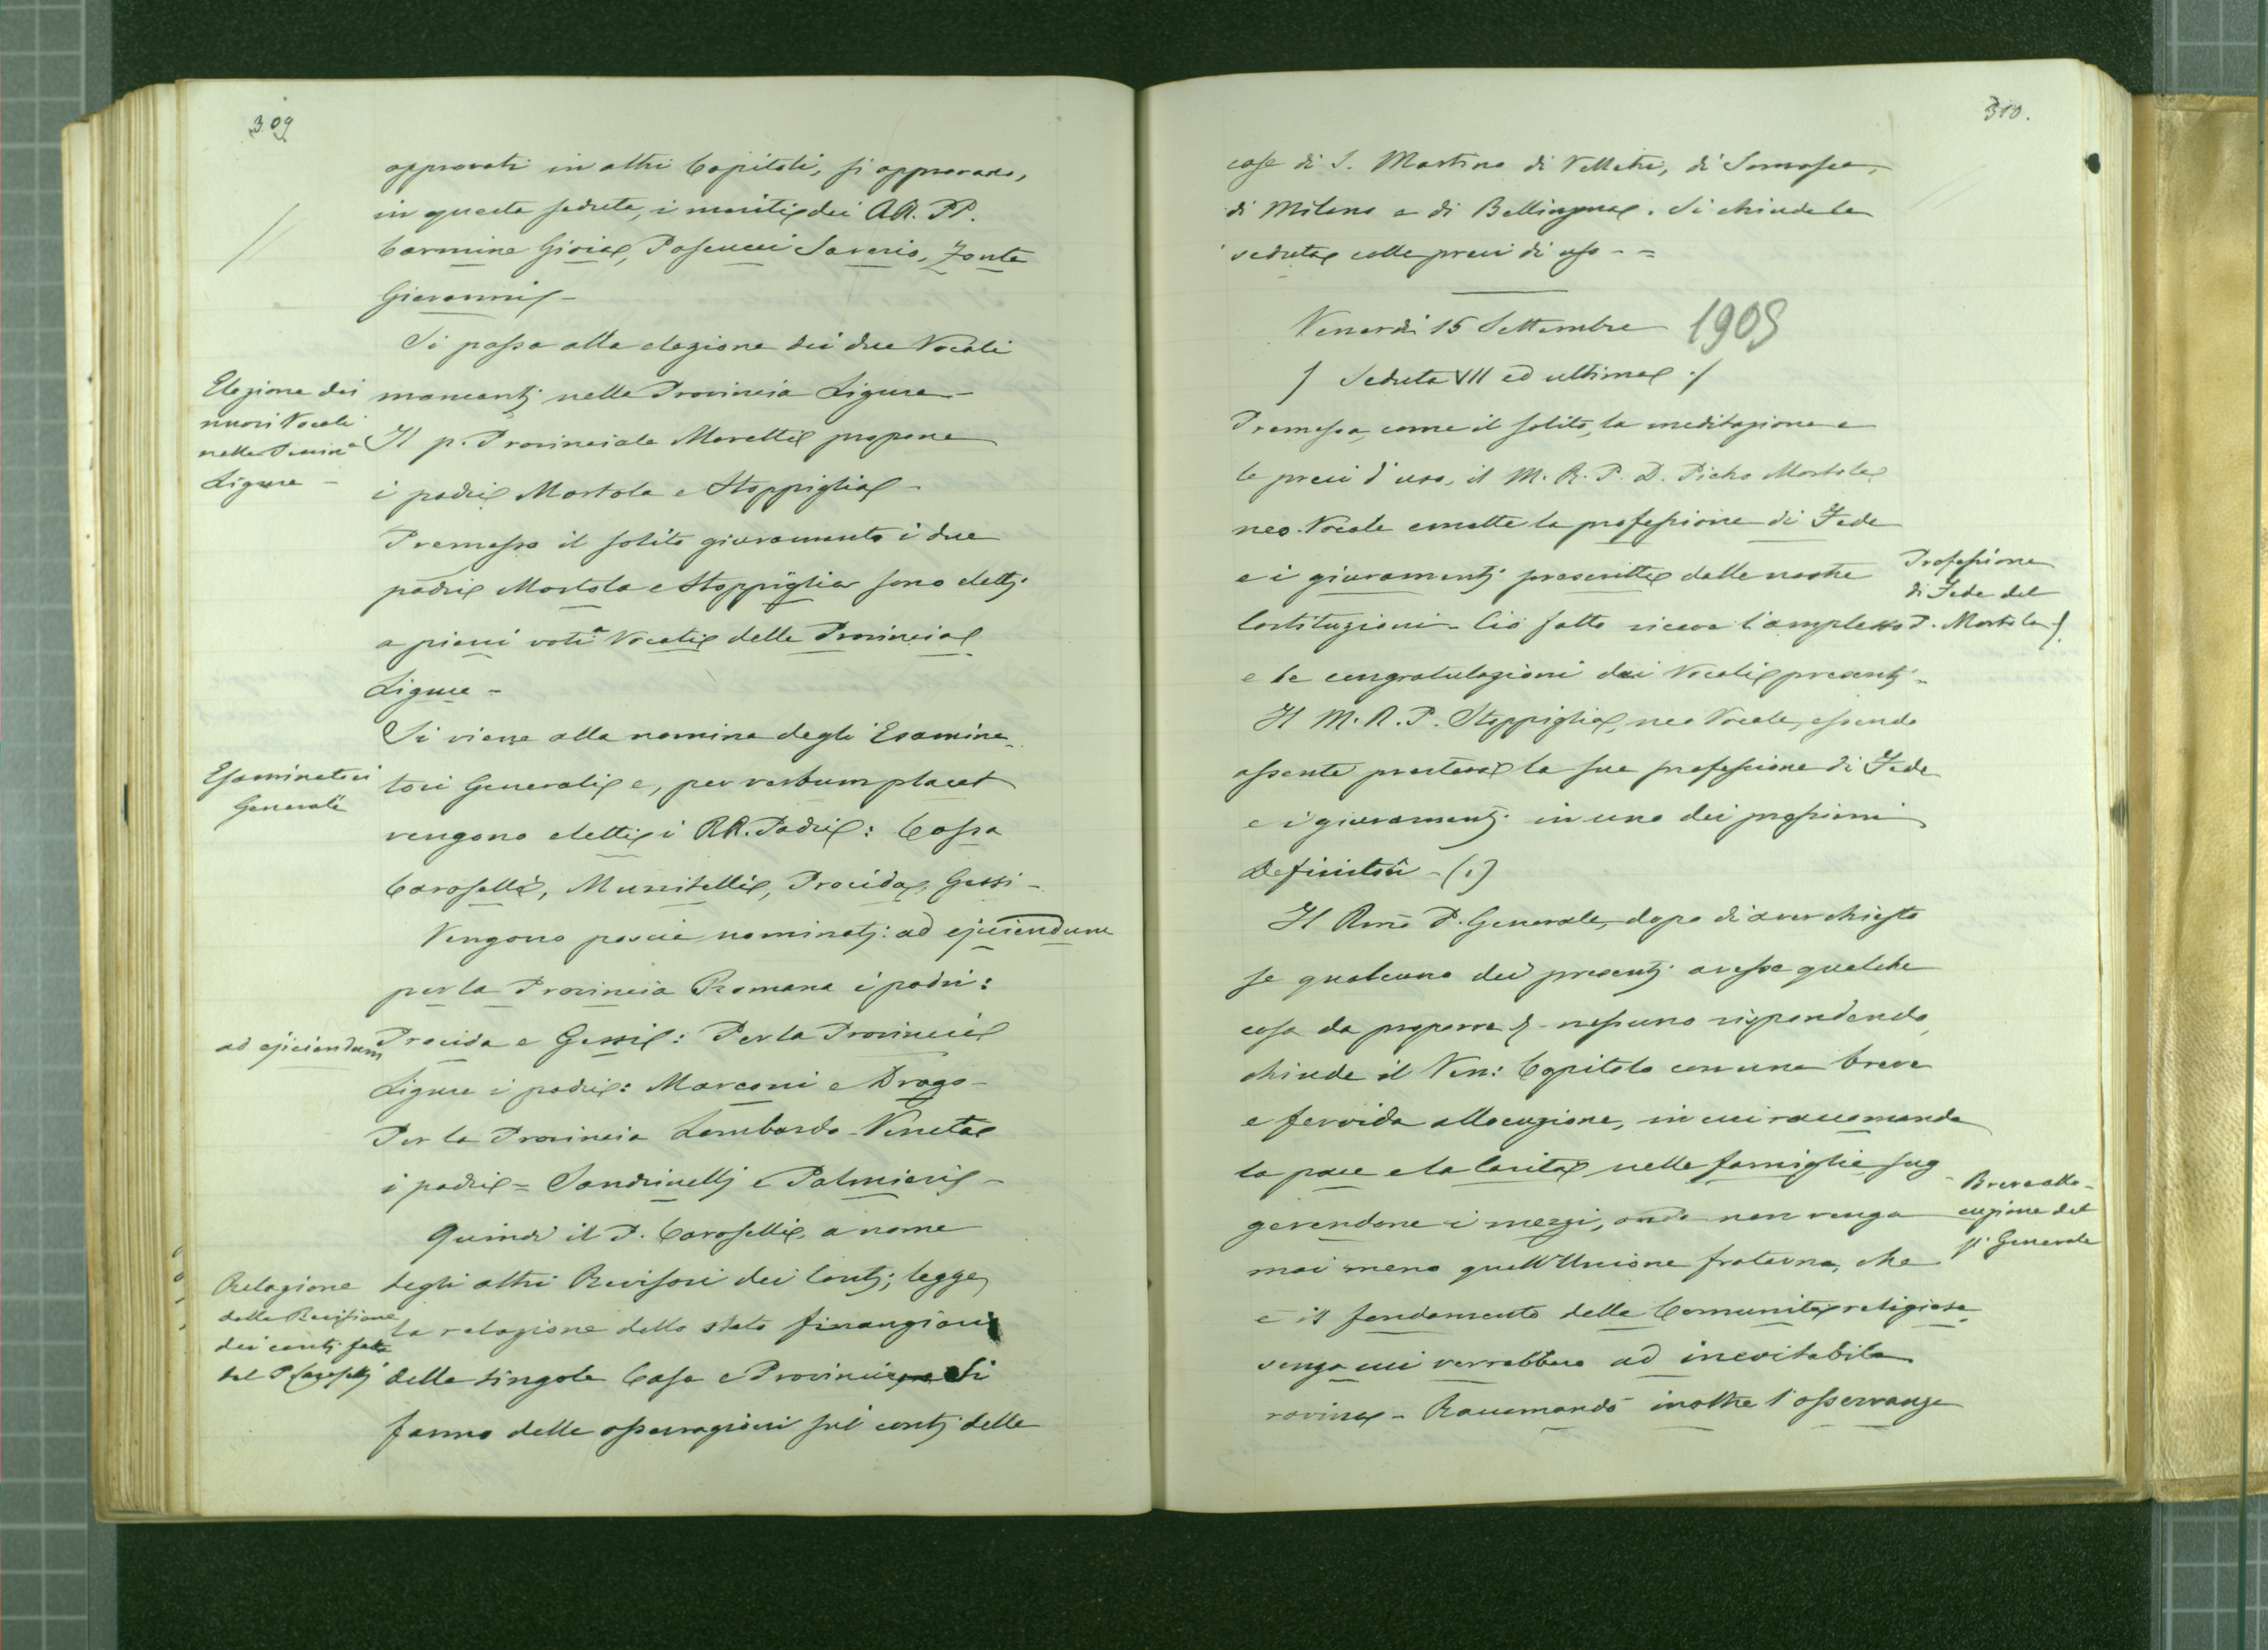 309
approvati in altri Capitoli, si approvano,
in questa seduta, i meriti dei RR. PP.
Carmine Gioia, Pascucci Saverio, Zonta
Giovanni -
Si passa alla elezione dei due Vocali
mancanti nella Provincia Ligure -
Elezione dei
nuovi Vocali
nella Provin.a
Ligure -
Il p. Provinciale Moretti propone
i padri Mortola e Stoppiglia -
Premesso il solito giuramento i due
padri Mortola e Stoppiglia sono eletti
a pieni voti a Vocali della Provincia
Ligure -
Si viene alla nomina degli Esamina-
Esaminatori
Generali
tori Generali e, per verbum placet
vengono eletti i RR. Padri: Cossa
Caroselli, Muzzitelli, Procida, Gessi -
Vengono poscia nominati: ad ejiciendum
per la Provincia Romana i padri:
ad ejiciendum
Procida e Gessi: Per la Provincia
Ligure i padri: Marconi e Drago -
Per la Provincia Lombardo-Veneta
i padri = Sandrinelli e Palmieri -
Quindi il P. Caroselli, a nome
Relazione
della Revisione
dei conti fatta
dal P. Caroselli
degli altri Revisori dei Conti, legge
la relazione dello stato finanziario
delle singole Case e Provincie. Si
fanno delle osservazioni sui conti delle
310.
case di S. Martino di Velletri, di Somasca,
di Milano e di Bellinzona. Si chiude la
seduta colle preci di uso - =
Venerdì 15 Settembre 1905
/ Seduta VII ed ultima ./
Premessa, come il solito, la meditazione e
le preci d'uso, il M. R. P. D. Pietro Mortola
neo-Vocale emette la professione di Fede
e i giuramenti prescritti dalle nostre
Professione
di Fede del
P. Mortola
Costituzioni - Ciò fatto riceve l'amplesso
e le congratulazioni dai Vocali presenti -
Il M. R. P. Stoppiglia, neo Vocale, essendo
assente presterà la sua professione di Fede
e i giuramenti in uno dei prossimi
Definitori - (1)
Il Rmo P. Generale, dopo di aver chiesto
se qualcuno dei presenti avesse qualche
cosa da proporre e - nessuno rispondendo,
chiude il Ven: Capitolo con una breve
e fervida allocuzione, in cui raccomanda
la pace e la Carità nelle famiglie sug-
Breve allo-
cuzione del
P. Generale
gerendone i mezzi, onde non venga
mai meno quell'Unione fraterna, che
è il fondamento della Comunità religiosa,
senza cui verrebbero ad inevitabile
rovina - Raccomandò inoltre l'osservanza